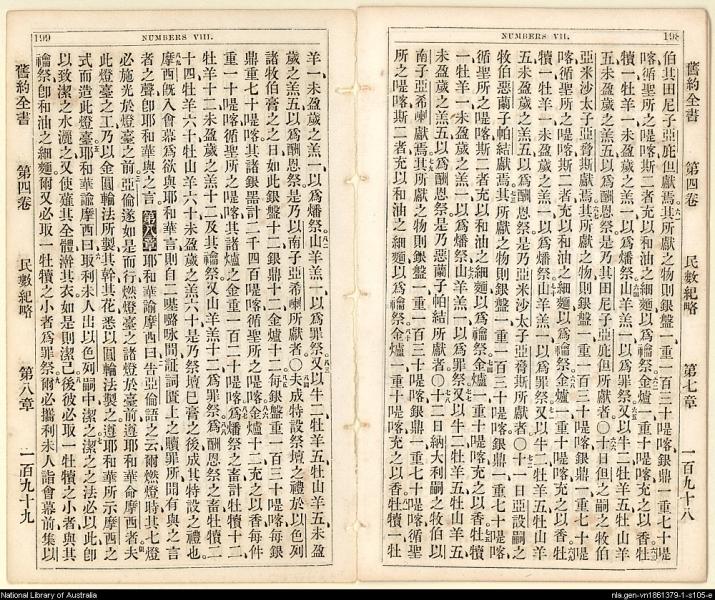 NUMBERS VII. 198
舊約全書 第四卷 民數紀略 第七章 一百九十八
伯其田尼子亞庇但獻焉其所獻之物則銀盤一重一百三十是喀銀鼎一重七十是
喀循聖所之是喀斯二者充以和油之細麵以爲禴祭金爐一重十是喀充之以香牡
犢一牡羊一未盈歲之羔一以爲燔祭山羊羔一以爲罪祭又以牛二牡羊五牡山羊
五未盈歲之羔五以爲酬恩祭是乃其田尼子亞庇但所獻者○十日但之嗣之牧伯
亞米沙太子亞脅斯獻焉其所獻之物則銀盤一重一百三十是喀銀鼎一重七十是
喀循聖所之是喀斯二者充以和油之細麵以爲禴祭金爐一重十是喀充之以香牡
犢一牡羊一未盈歲之羔一以爲燔祭山羊羔一以爲罪祭又以牛二牡羊五牡山羊
五未盈歲之羔五以爲酬恩祭是乃亞米沙太子亞脅斯所獻者○十一日亞設嗣之
牧伯惡蘭子帕結獻焉其所獻之物則銀盤一重一百三十是喀銀鼎一重七十是喀
循聖所之是喀斯二者充以和油之細麵以爲禴祭金爐一重十是喀充之以香牡犢
一牡羊一未盈歲之羔一以爲燔祭山羊羔一以爲罪祭又以牛二牡羊五牡山羊五
未盈歲之羔五以爲酬恩祭是乃惡蘭子帕結所獻者○十二日納大利嗣之牧伯以
南子亞希喇獻焉其所獻之物則銀盤一重一百三十是喀銀鼎一重七十是喀循聖
所之是喀斯二者充以和油之細麵以爲禴祭金爐一重十是喀充之以香牡犢一牡
199 NUMBERS VIII.
羊一未盈歲之羔一以爲燔祭山羊羔一以爲罪祭又以牛二牡羊五牡山羊五未盈
歲之羔五以爲酬恩祭是乃以南子亞希喇所獻者○夫成特設祭壇之禮於以色列
諸牧伯膏之之日如此銀盤十二銀鼎十二金爐十二每銀盤重一百三十是喀每銀
鼎重七十是喀其諸銀器計二千四百是喀循聖所之是喀金爐十二充之以香每件
重一十是喀循聖所之是喀其諸爐之金重一百二十是喀爲燔祭之畜計牡犢十二
牡羊十二未盈歲之羔十二及其禴祭又山羊羔十二爲罪祭爲酬恩祭之畜牡犢二
十四牡羊六十牡山羊六十未盈歲之羔六十是乃祭壇巳膏之後成其特設之禮也
摩西旣入會幕爲欲與耶和華言則自二𠼻𡀲𠱥間証詞匱上之贖罪所聞有與之言
者之聲卽耶和華與之言 第八章 耶和華諭摩西曰告亞倫語之云爾燃燈時其七燈
必施光於燈臺之前亞倫遂如是而行燃燈臺之諸燈於臺前遵耶和華命摩西者夫
此燈臺之工乃以金圓輪法所製其幹其花悉以圓輪法製之遵耶和華所示摩西之
式而造此燈臺耶和華諭摩西曰取利未人出以色列嗣中潔之潔之之法必以此卽
以致潔之水灑之又使薙其全體澣其衣如是則潔己後彼必取一牡犢之小者與其
禴祭卽和油之細麵爾又必取一牡犢之小者爲罪祭爾必攜利未人詣會幕前集以
舊約全書 第四卷 民數紀略 第八章 一百九十九
National Library of Australia
nla.gen-vn1861379-1-s105-e